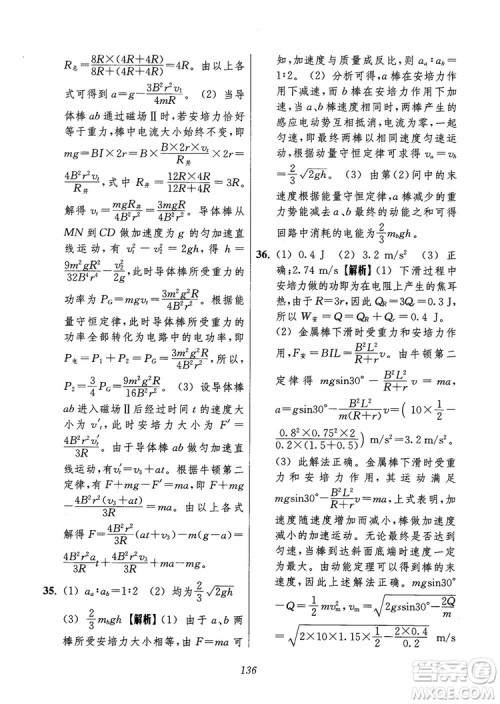 R总=8R×(4R+4R)/8R+(4R+4R)=4R. 由以上各
式可得到 a=g-3B²r²v₁/4mR. (2) 当导体
棒通过磁场Ⅱ时,若安培力恰好
等于重力,棒中电流大小始终不变,
即 mg=BI×2r=B×B×2r×v/R并×2r=
4B²r²v/R并, 式中 R并=12R×4R/12R+4R=3R,
解得 vₜ=mgR并/4B²r²=3mgR/4B²r². 导体棒从
MN 到 CD 做加速度为 g 的匀加速直
线运动,有 vₜ²-v₂²=2gh, 得 h=
9m²gR²/32B⁴r⁴-v₂²/2g. 此时导体棒所受重力的
功率为 P_G=mgvₜ=3m²g²R/4B²r². 根据能量
守恒定律,导体棒所受重力的
功率全部转化为电路的电功率,即
P电=P₁+P₂=P_G=3m²g²R/4B²r². 所以,
P₂=3/4P_G=9m²g²R/16B²r². (3) 设导体棒
ab 进入磁场Ⅱ后经过时间 t 的速度大
小为vₜ′,此时安培力大小为 F′=
4B²r²vₜ′/3R. 由于导体棒 ab 做匀加速直
线运动,有vₜ′=v₃+at. 根据牛顿第二
定律,有 F+mg-F′=ma, 即 F+mg-
4B²r²(v₃+at)/3R=ma. 由以上各式解得 F=
4B²r²/3R(at+v₃)-m(g-a)=
4B²r²at/3R+4B²r²v₃/3R+ma-mg.
35. (1) aₐ∶a_b=1∶2 (2) 均为2/3√2gh
(3) 2/3m_bgh 【解析】(1) 由于 a、b 两
棒所受安培力大小相等,由 F=ma 可
知,加速度与质量成反比,可得 aₐ∶a_b=
1∶2. (2) 分析可得,a 棒在安培力作
用下减速,而 b 棒在安培力作用下
加速.当 a、b棒共速时,两棒产生的
感应电动势互相抵消,电流为零,一起
匀速.由动量守恒定律可得末速度 v=
2/3√2gh. (3) 由第(2)问中的末
速度根据能量守恒定律可求出
回路中消耗的能量为2/3m_bgh.
36. (1) 0.4 J (2) 3.2 m/s² (3) 正
确;2.74 m/s 【解析】(1) 下滑过程中
安培力做的功即为在电阻上产生的焦
耳热,由于 R=3r, 因此 Q_R=3Qᵣ=0.3 J.
所以 W安=Q=Q_R+Qᵣ=0.4 J.
(2) 金属棒下滑时受重力和安培力作
用 F安=BIL=B²L²/R+r v. 由牛顿第二
定律得 mgsin30°-B²L²/R+r v=ma. a=
gsin30°-B²L²/m(R+r) v=(10×1/2-
0.8²×0.75²×2/0.2×(1.5+0.5)) m/s²=3.2 m/s².
(3) 此解法正确. 金属棒下滑时受重
力和安培力作用,其运动满足
mgsin30°-B²L²/R+r v=ma. 上式表明,加速
度随速度增加而减小,棒做加速度减
小的加速运动.无论最终是否达到
匀速,当棒到达斜面底端时速度一定
为最大.由动能定理可以得到末速度,
因此上述解法正确. mgsin30°
-Q=1/2mvₘ², 所以 vₘ=√2gsin30°-2Q/m
=√2×10×1.15×1/2-2×0.4/0.2 m/s
136
答案圈